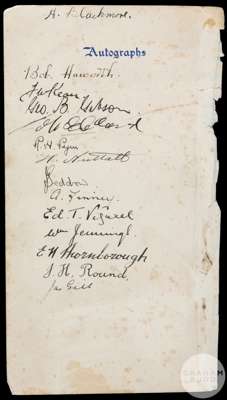 A. Blackmore.
Autographs
Bob. Haworth.
Geo. B. Gibson.
R. H. Payne
H. Nuttall
Beddow
A. Finney
Ed. T. Vizard
Wm Jennings.
E H Thornborough
J. H. Round.
Jas Gill
GRAHAM BUDD